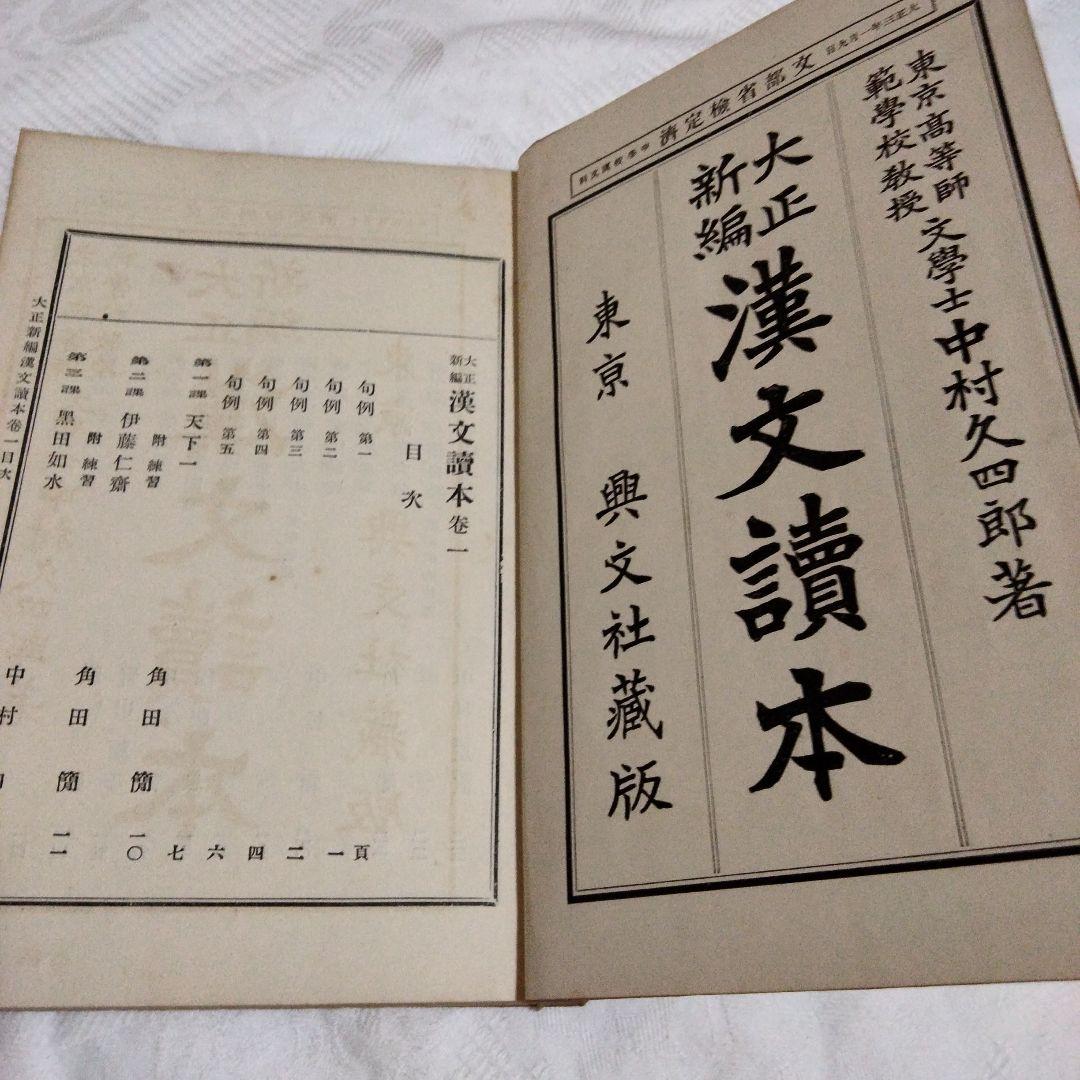 大正三年一月九日 文部省檢定濟 中學校漢文科
東京高等師範學校教授
文學士 中村久四郎著
大正新編 漢文讀本
東京 興文社藏版
大正新編 漢文讀本卷一
目次
句例 第一 一頁
句例 第二 二
句例 第三 四
句例 第四 六
句例 第五 七
第一課 天下一 角田簡 一〇
附練習
第二課 伊藤仁齋 角田簡 一一
附練習
第三課 黑田如水 中村
大正新編漢文讀本卷一 目次